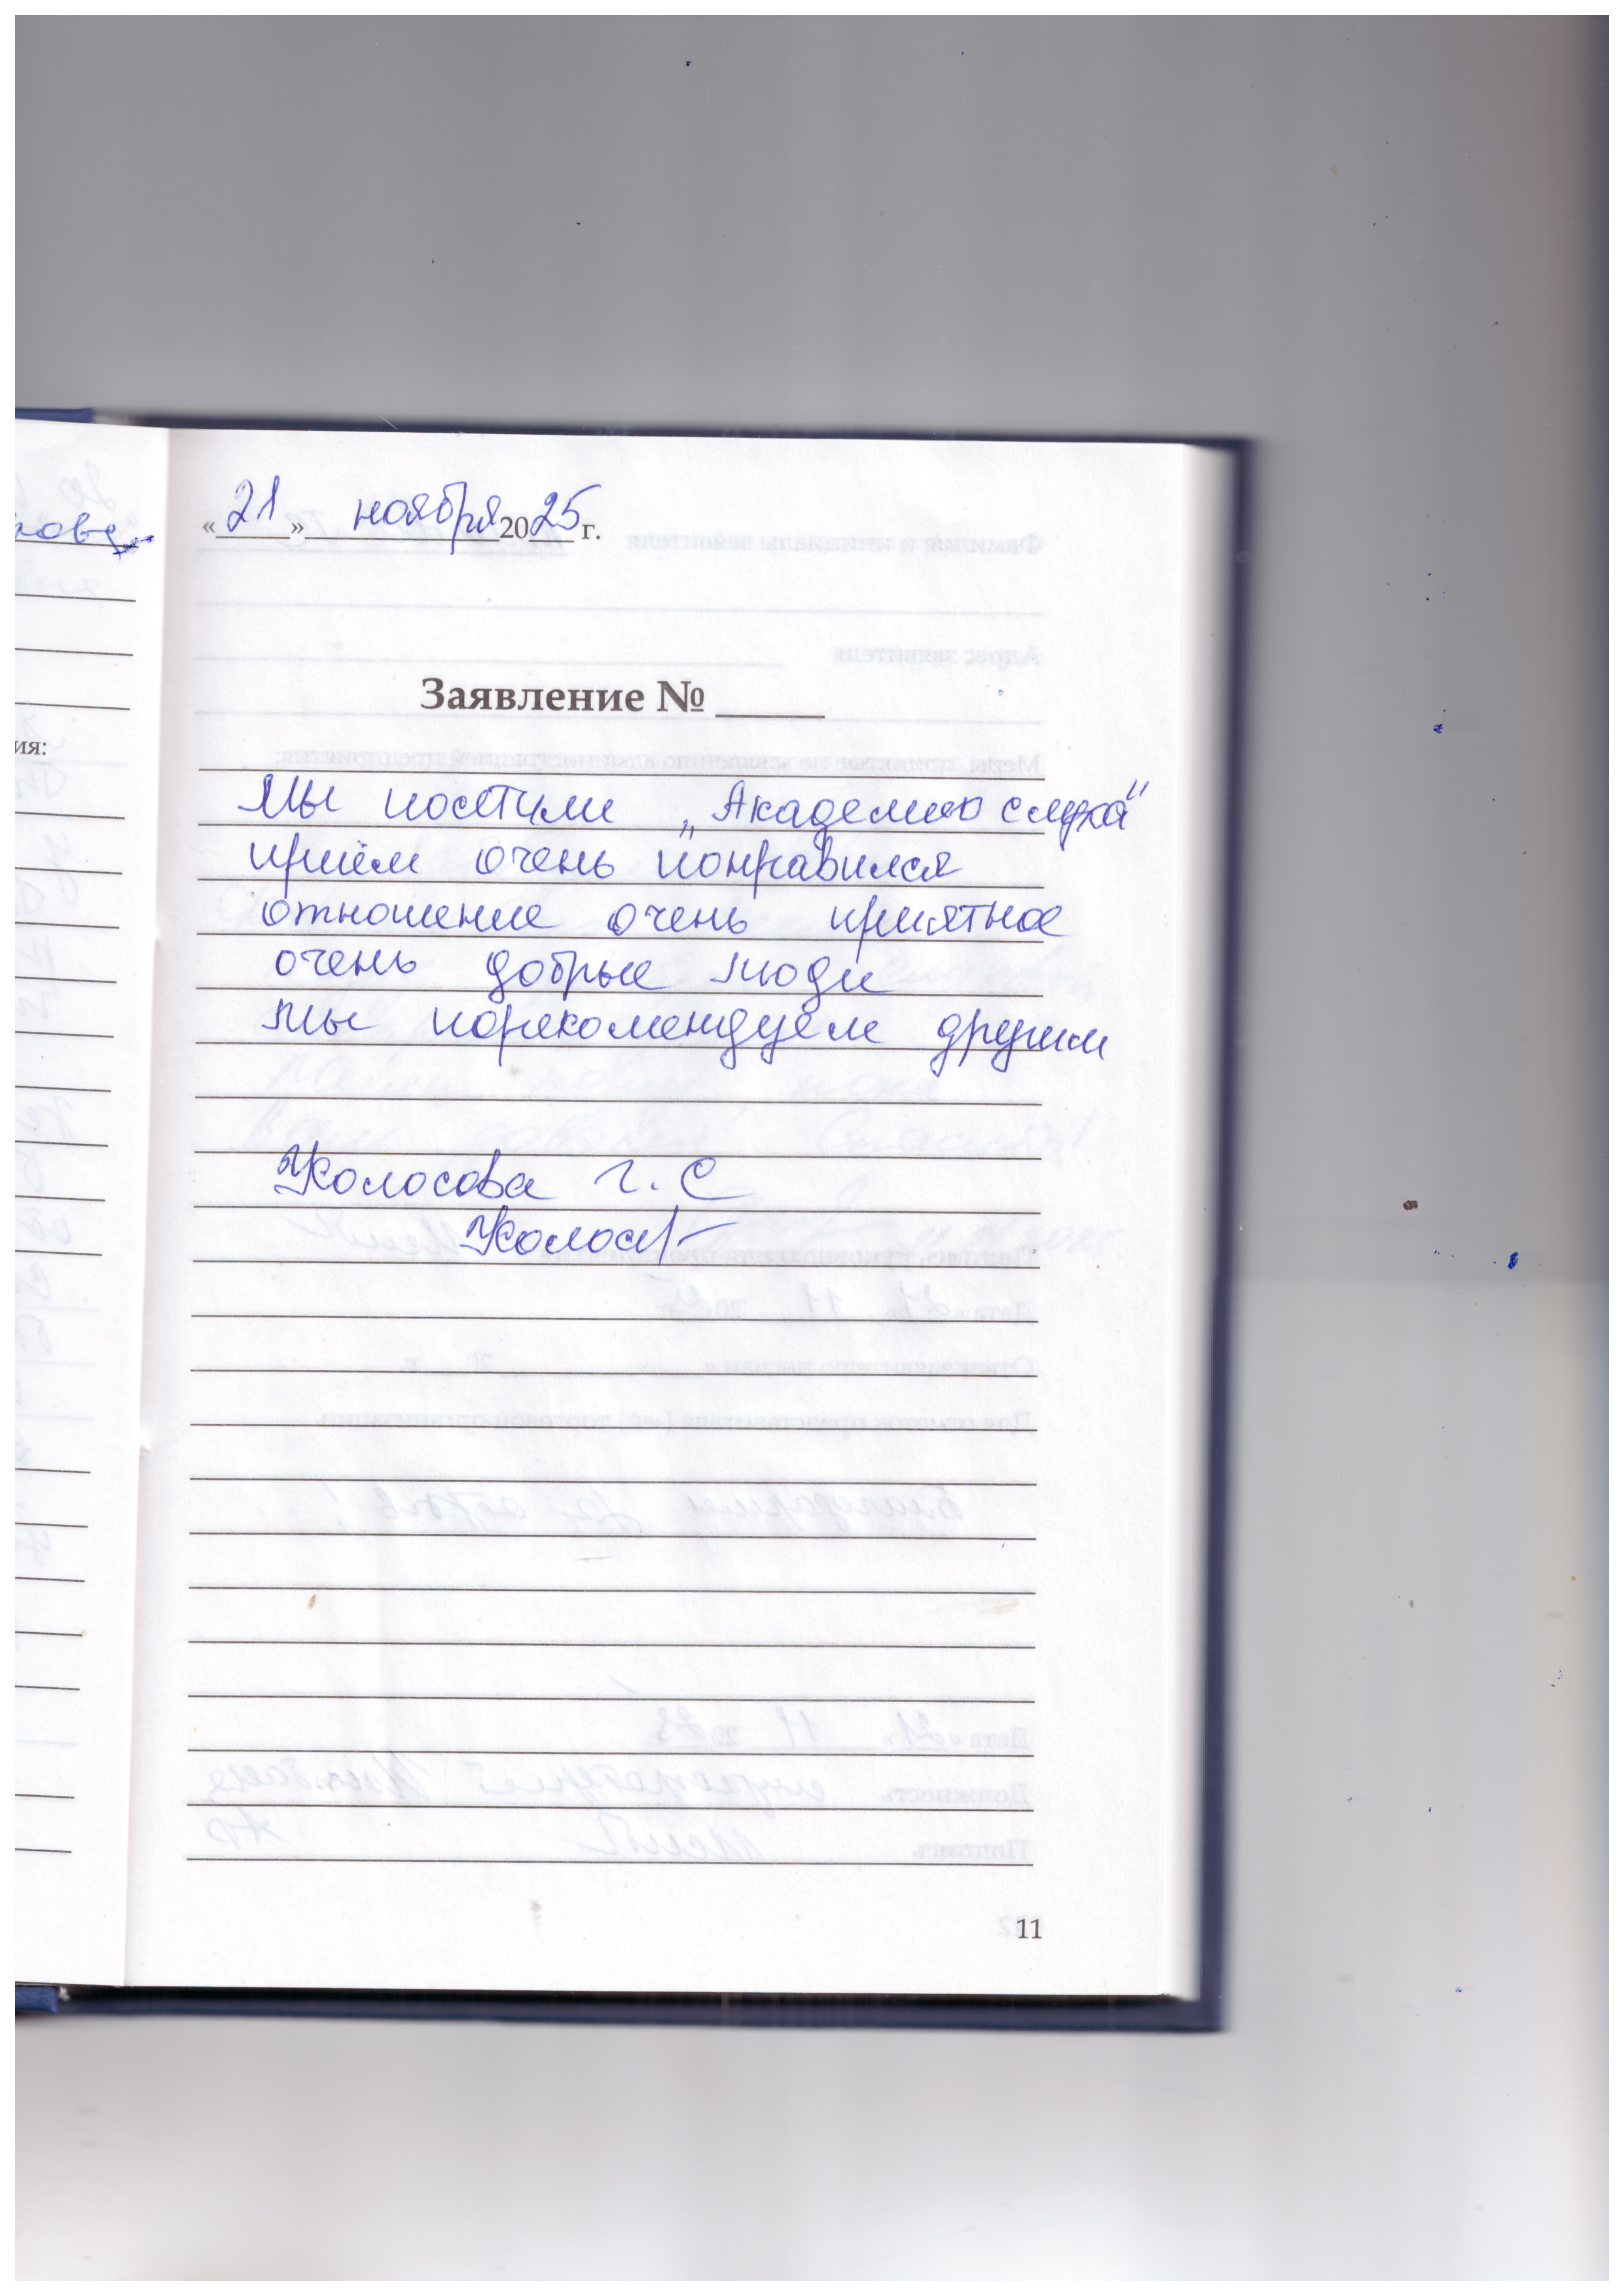 «21» ноября 2025 г.
Заявление № ____
Мы посетили „Академию слуха"
приём очень понравился
отношение очень приятное
очень добрые люди
мы порекомендуем другим
Колосова Г. С
ия:
11